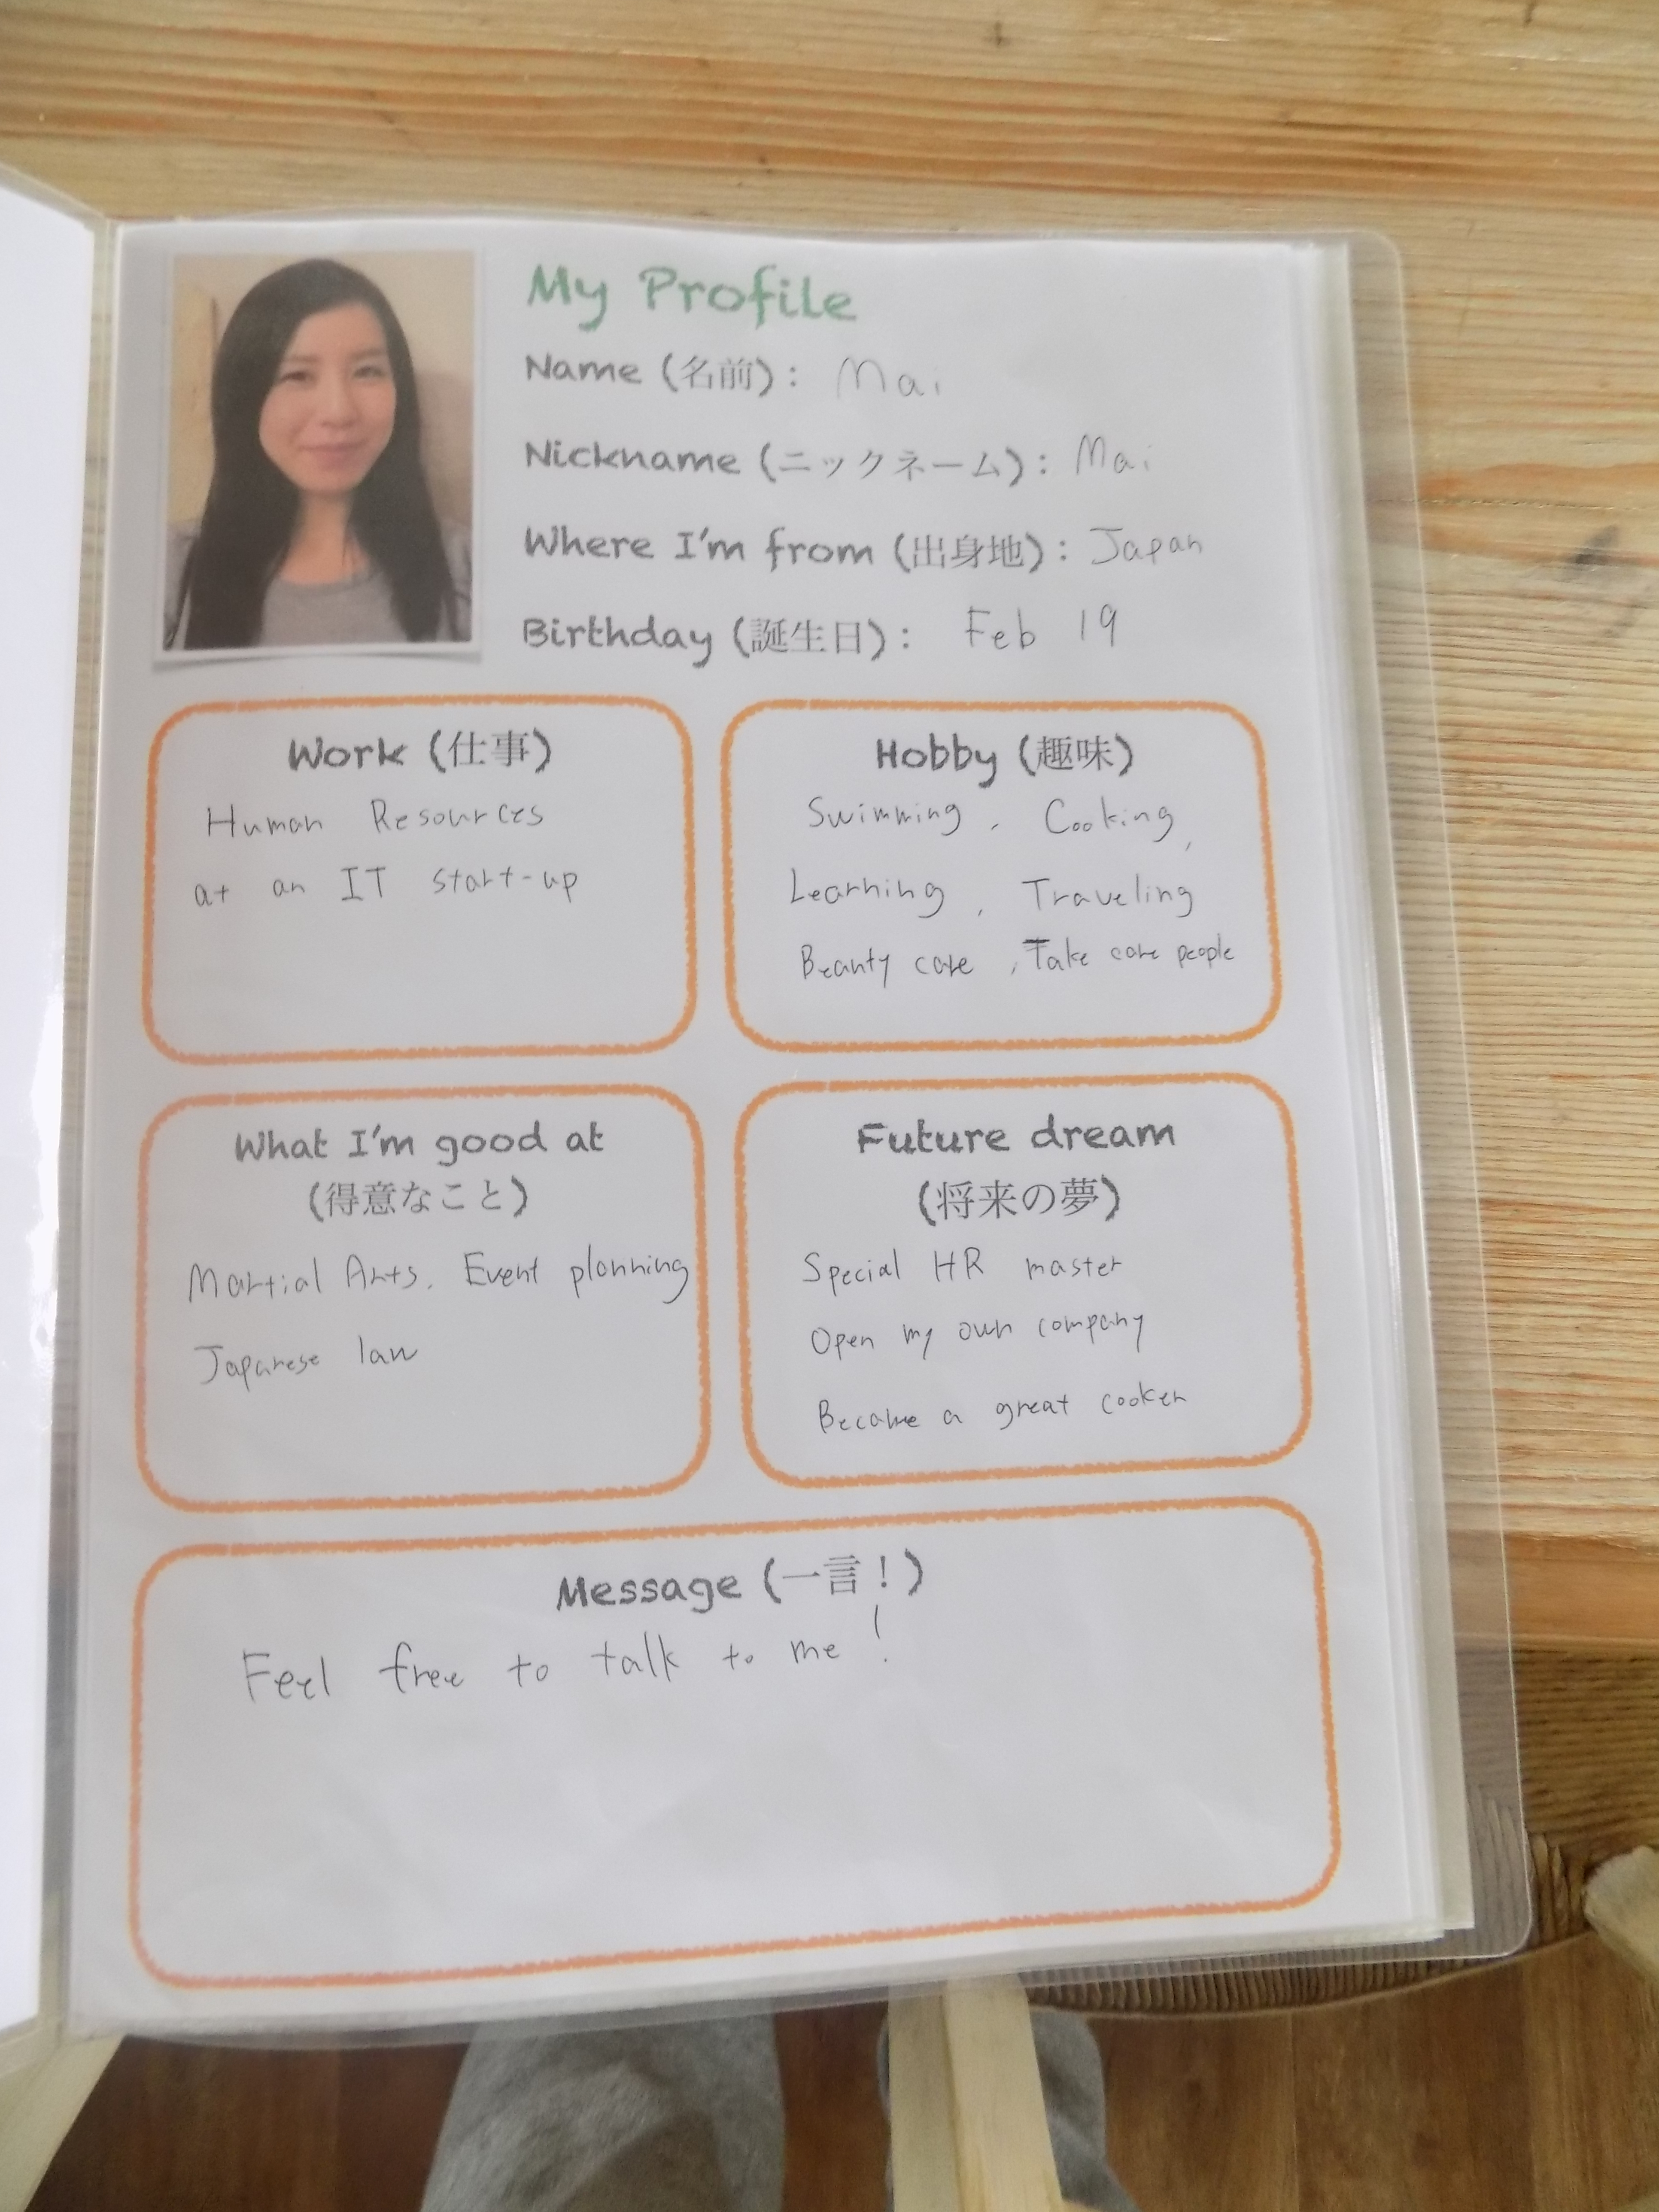 My Profile
Name (名前): Mai
Nickname (ニックネーム): Mai
Where I'm from (出身地): Japan
Birthday (誕生日): Feb 19
Work (仕事)
Human Resources
at an IT start-up
Hobby (趣味)
Swimming, Cooking,
Learning, Traveling
Beauty care, Take care people
What I'm good at
(得意なこと)
Martial Arts, Event planning
Japanese law
Future dream
(将来の夢)
Special HR master
Open my own company
Become a great cooker
Message (一言!)
Feel free to talk to me!